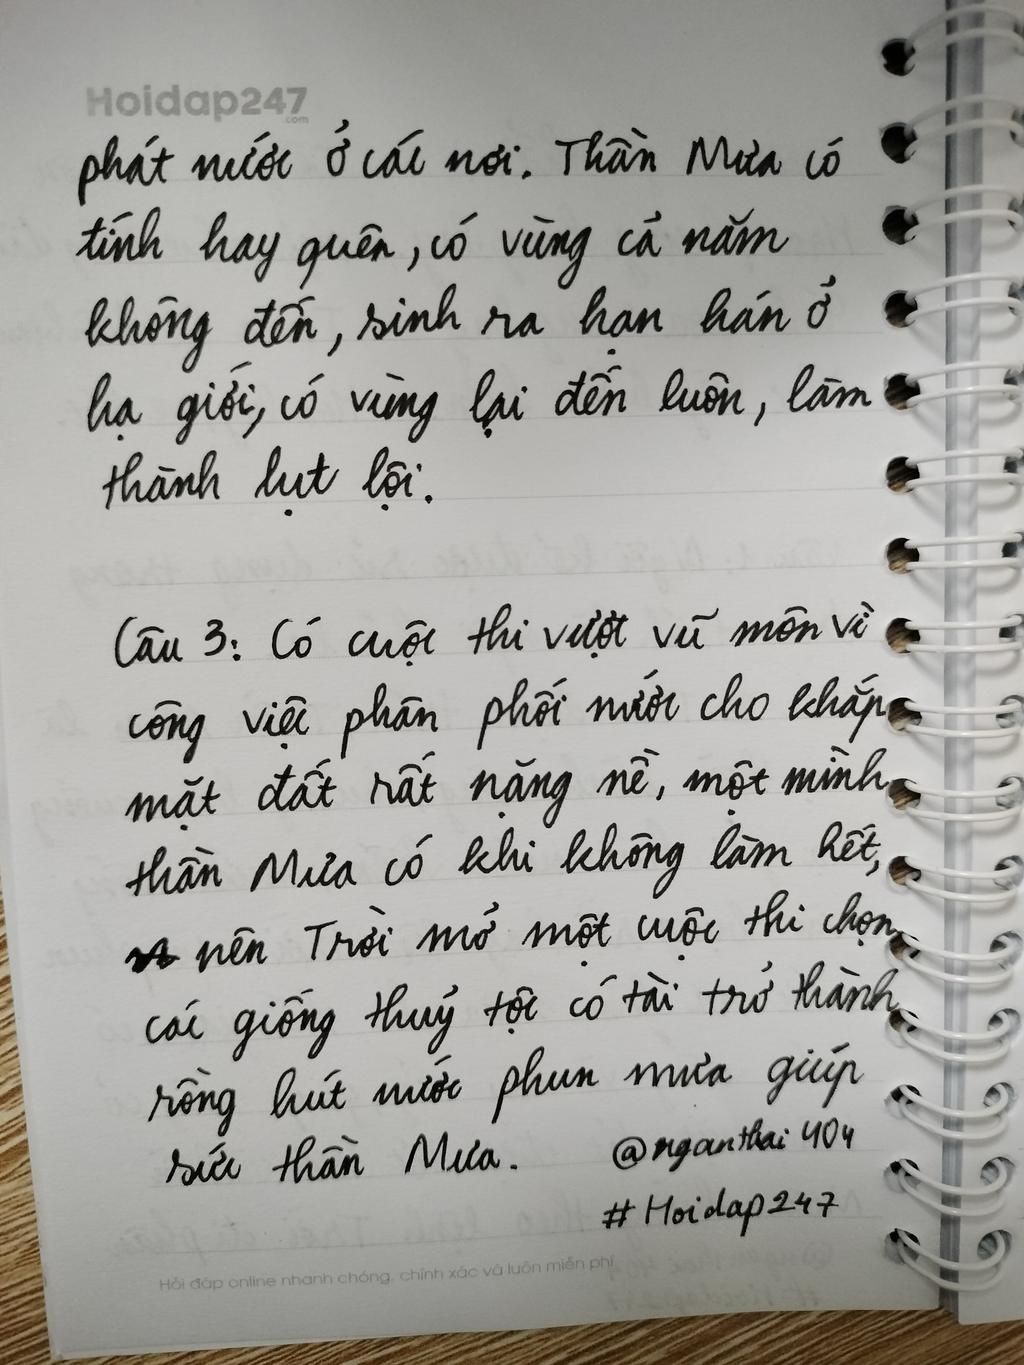 Hoidap247
.com
phát nước ở các nơi. Thần Mưa có
tính hay quên, có vùng cả năm
không đến, sinh ra hạn hán ở
hạ giới, có vùng lại đến luôn, làm
thành lụt lội.
Câu 3: Có cuộc thi vượt vũ môn vì
công việc phân phối nước cho khắp
mặt đất rất nặng nề, một mình
thần Mưa có khi không làm hết,
nên Trời mở một cuộc thi chọn
các giống thuỷ tộc có tài trở thành
rồng hút nước phun mưa giúp
sức thần Mưa. @nganthai404
#Hoidap247
Hỏi đáp online nhanh chóng, chính xác và luôn miễn phí